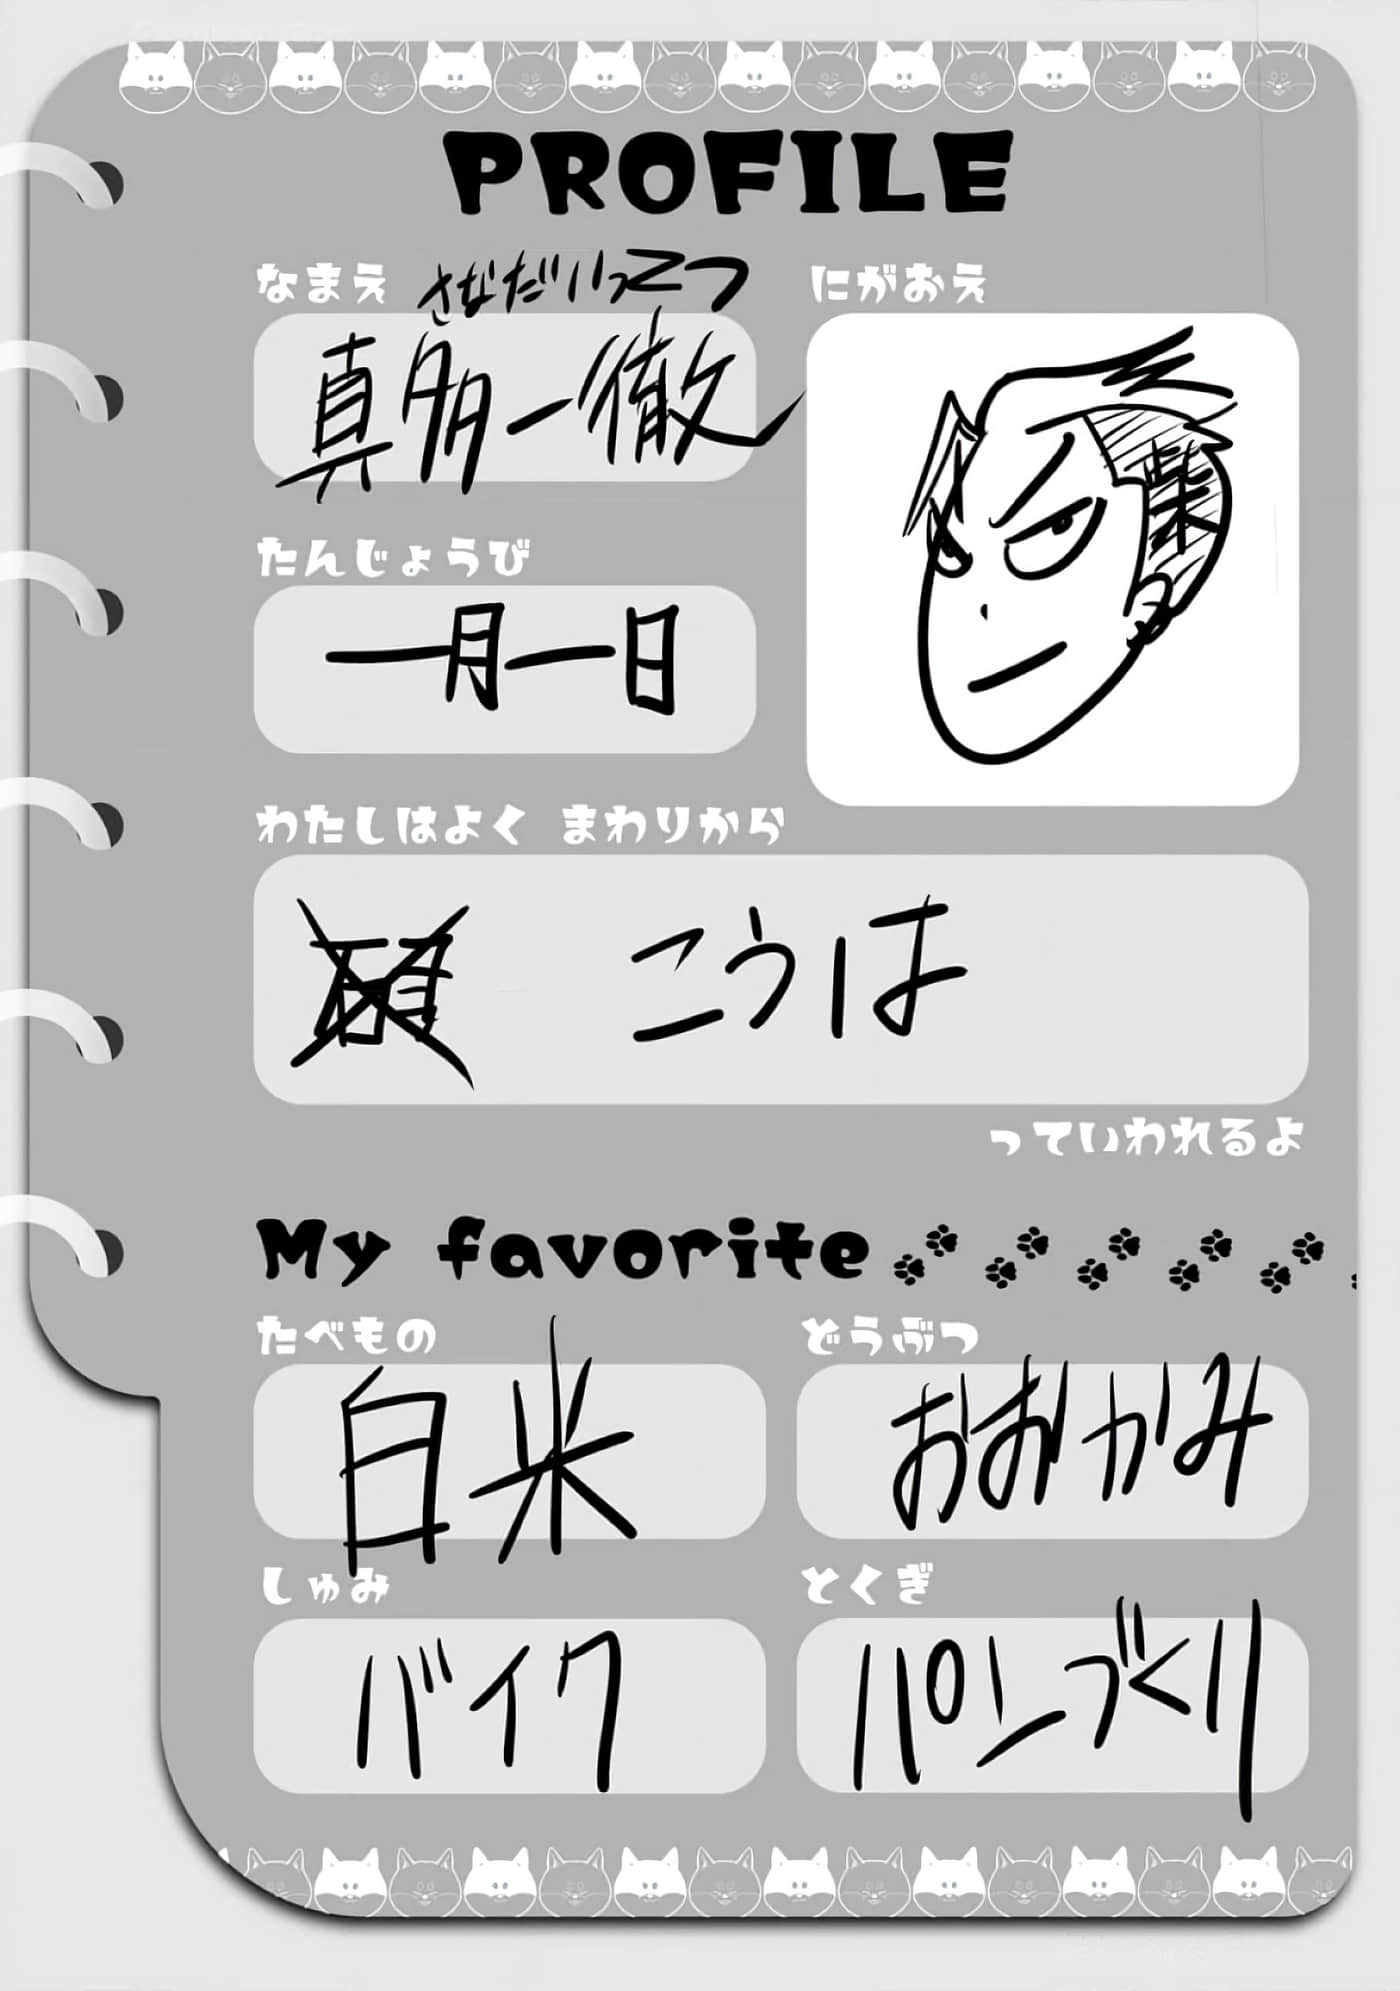 PROFILE
なまえ
さなだいってつ
真多一徹
にがおえ
柴
たんじょうび
一月一日
わたしはよく まわりから
こうは
っていわれるよ
My favorite
たべもの
白米
どうぶつ
おおかみ
しゅみ
バイク
とくぎ
パンづくり